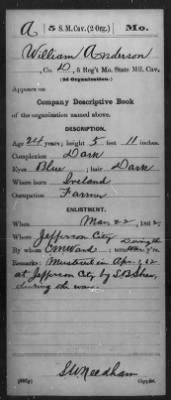 A 5 S.M. Cav. (2 Org.) Mo.
William Anderson
, Co. D, 5 Reg't Mo. State Mil. Cav.
(2d Organization.)
Appears on
Company Descriptive Book
of the organization named above.
DESCRIPTION.
Age 24 years; height 5 feet 11 inches.
Complexion Dark
Eyes Blue; hair Dark
Where born Ireland
Occupation Farmer
ENLISTMENT.
When Mar 22, 1862.
Where Jefferson City
By whom C M Ward; term y'rs.
Remarks: Mustered in Apr 62
at Jefferson City by
during the war.
S W Needham
Copyist.